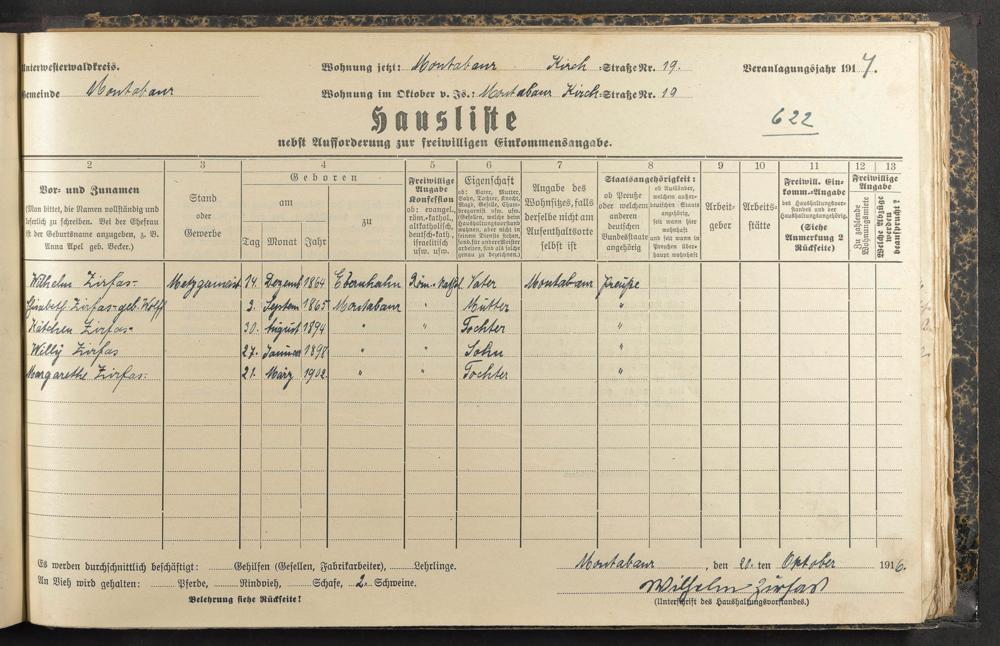 Unterwesterwaldkreis. Wohnung jetzt: Montabaur Kirch-Straße Nr. 19. Veranlagungsjahr 1917.
Gemeinde Montabaur Wohnung im Oktober v. Js.: Montabaur Kirch-Straße Nr. 19
622
Hausliste
nebst Aufforderung zur freiwilligen Einkommensangabe.
2 3 4 5 6 7 8 9 10 11 12 13
Vor- und Zunamen
(Man bittet, die Namen vollständig und
leserlich zu schreiben. Bei der Ehefrau
ist der Geburtsname anzugeben, z. B.
Anna Apel geb. Becker.)
Stand
oder
Gewerbe
Geboren
am
zu
Tag Monat Jahr
Freiwillige
Angabe
Konfession
ob: evangel.,
röm.-kathol.,
altkatholisch,
deutsch-kath.,
israelitisch
usw. usw.
Eigenschaft
ob: Vater, Mutter,
Sohn, Tochter, Knecht,
Magd, Geselle, Cham-
bregarnist usw. usw.
(Gesellen, welche beim
Haushaltungsvorstand
wohnen, aber nicht in
seinem Dienste stehen,
sond. für andere Meister
arbeiten, sind als solche
genau zu bezeichnen.)
Angabe des
Wohnsitzes, falls
derselbe nicht am
Aufenthaltsorte
selbst ist
Staatsangehörigkeit:
ob Preuße
oder welchem
anderen
deutschen
Bundesstaate
angehörig
ob Ausländer,
welchem außer-
deutschen Staate
angehörig,
seit wann hier
wohnhaft
und seit wann in
Preußen über-
haupt wohnhaft
Arbeit-
geber
Arbeits-
stätte
Freiwill. Ein-
komm.-Angabe
des Haushaltungsvor-
standes und der
Haushaltungsangehörig.
(Siehe
Anmerkung 2
Rückseite)
Freiwillige
Angabe
Zu zahlende
Wohnungsmiete
Welche Abzüge
werden
beansprucht?
Wilhelm Zirfas- 14. Dezemb 1864 Ebernhahn Röm.-Kathol. Vater Montabaur Preuße
Elisabeth Zirfas-geb. Wolff 3. Septem 1865 Montabaur " Mutter "
Kätchen Zirfas- 30. August 1894 " " Tochter "
Willy Zirfas 27. Januar " " Sohn "
Margarethe Zirfas- 21. März 1902 " " Tochter "
Es werden durchschnittlich beschäftigt: Gehilfen (Gesellen, Fabrikarbeiter), Lehrlinge.
Montabaur, den 20. ten Oktober 1916.
An Vieh wird gehalten: Pferde, Rindvieh, Schafe, 2 Schweine.
Wilhelm Zirfas
Belehrung siehe Rückseite!
(Unterschrift des Haushaltungsvorstandes.)